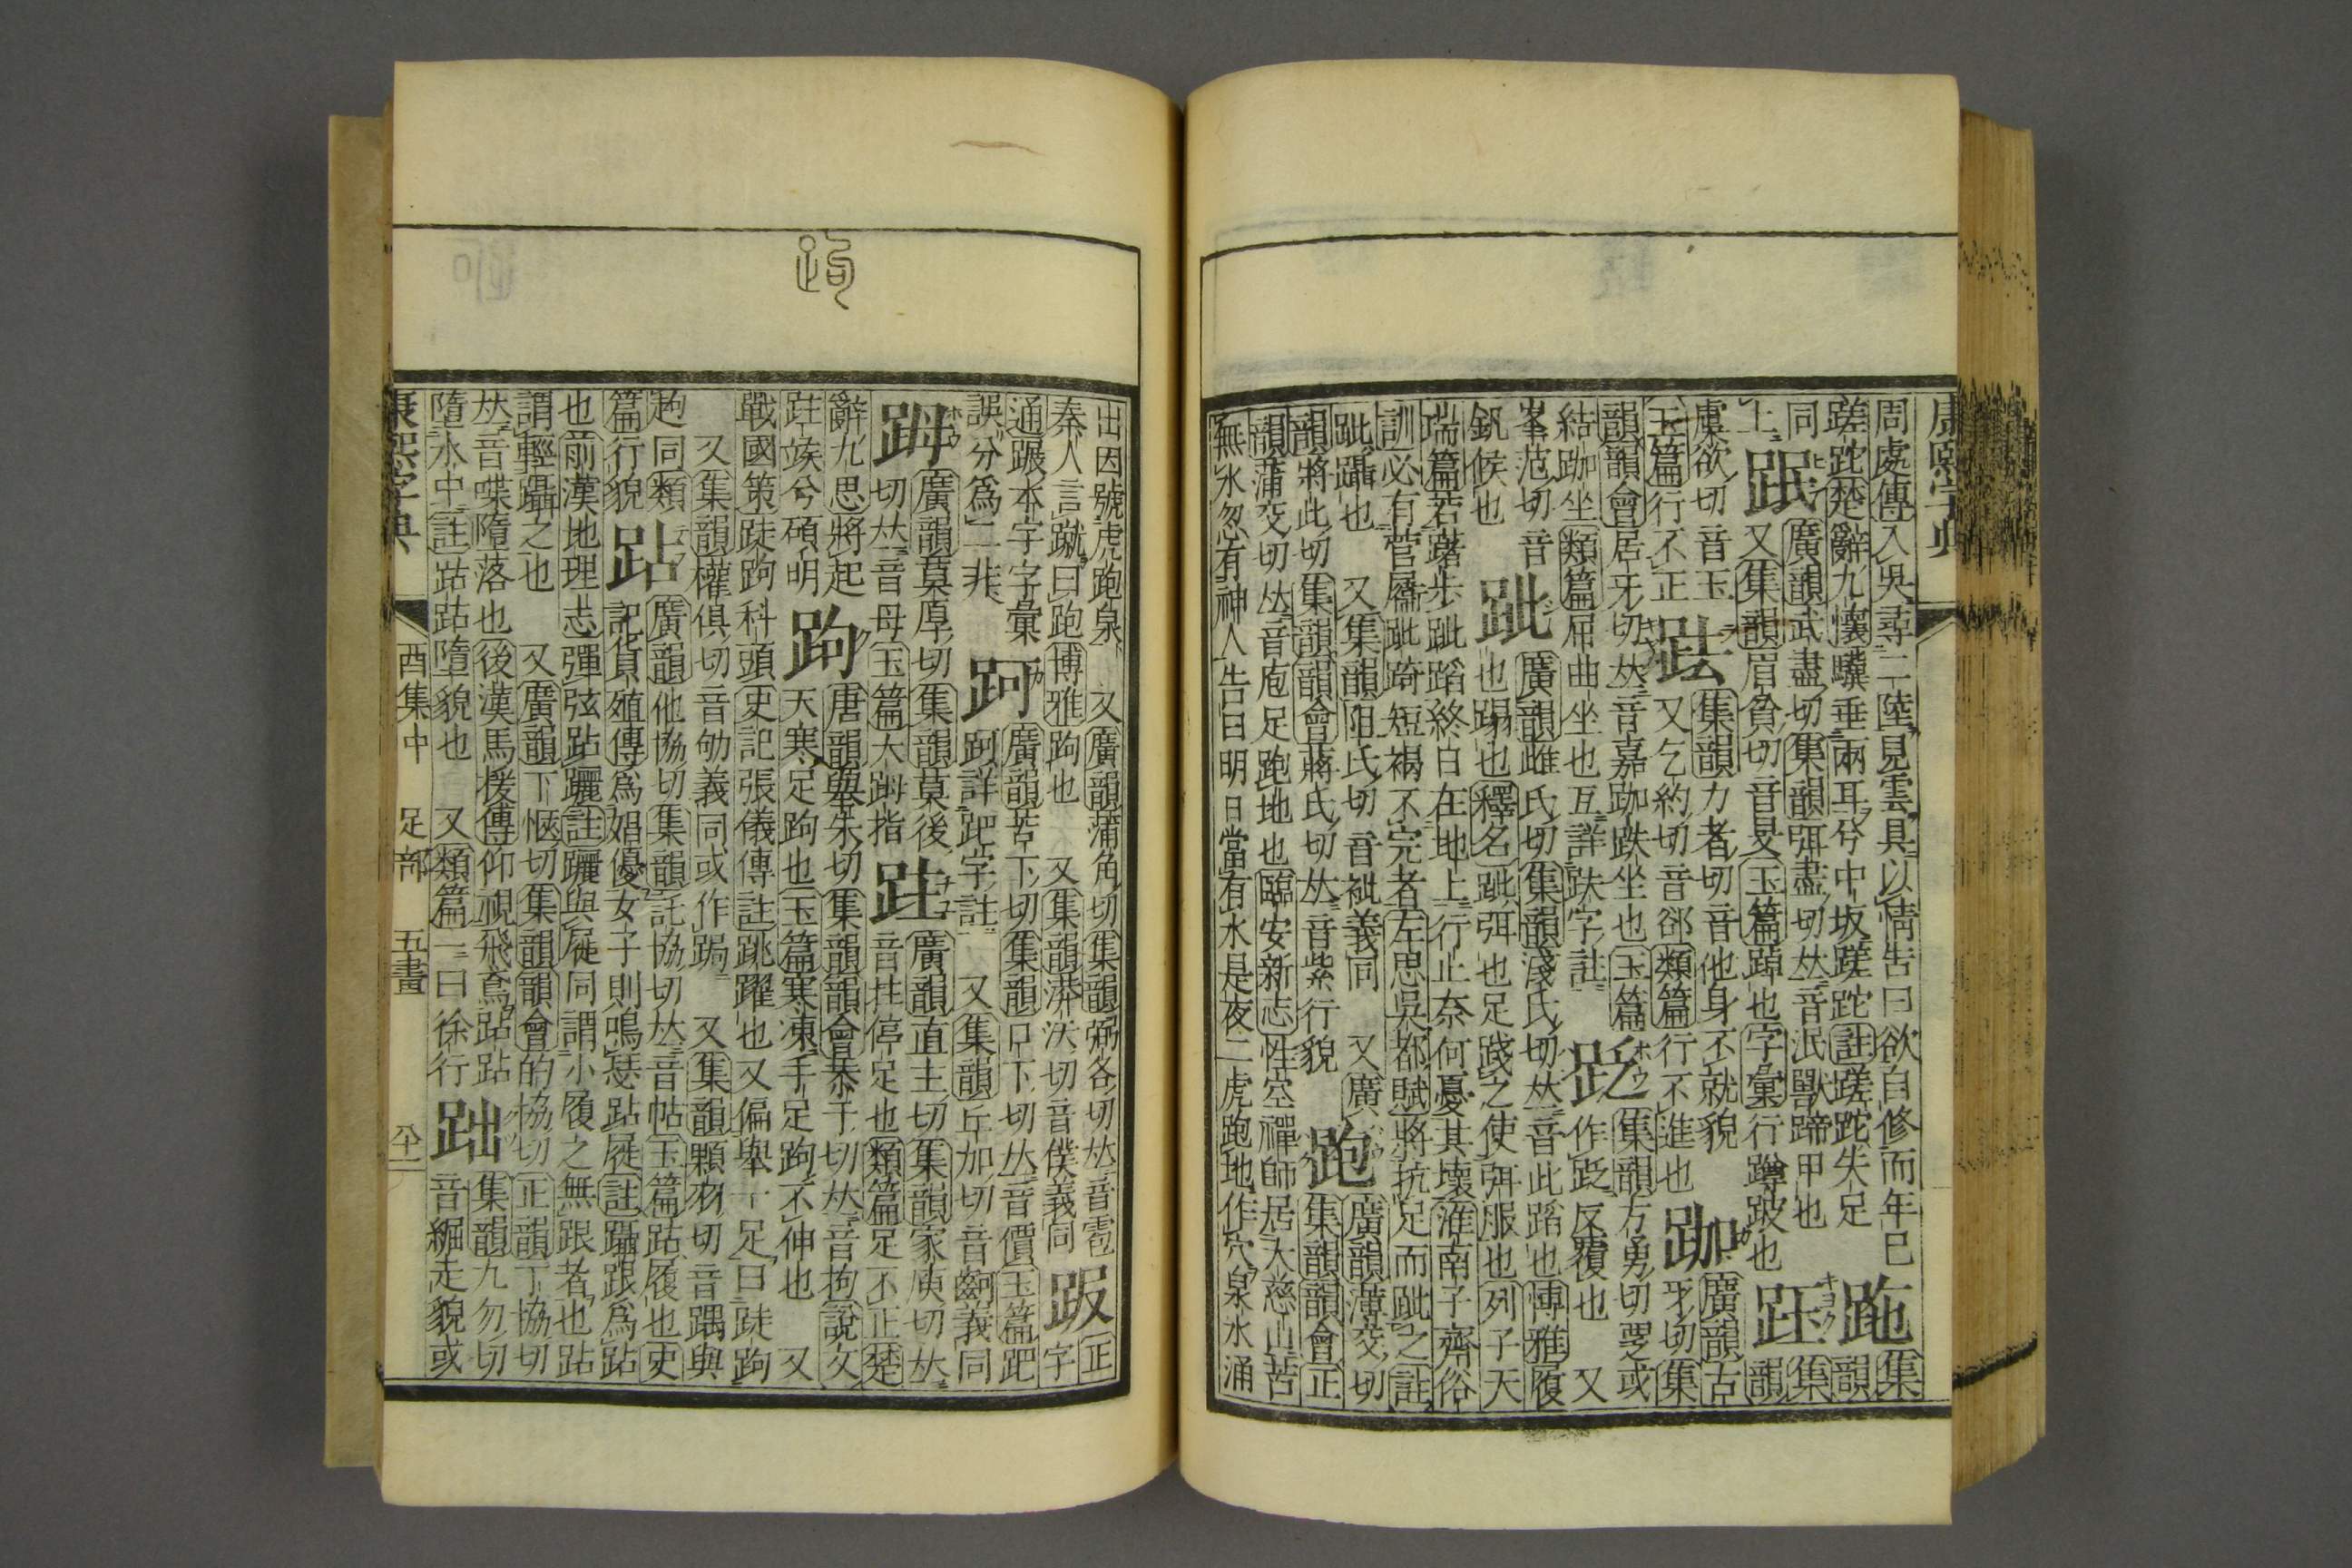 康熙字典
周處傳入吳尋二陸見雲具以情告曰欲自修而年已
蹉跎楚辭九懷驥垂兩耳兮中坂蹉跎註蹉跎失足
同上
跑集韻
跙集韻
廣韻武盡切集韻弭盡切𠀤音泯獸蹄甲也
又集韻眉貧切音旻玉篇踔也字彙行蹲跛也
集韻力者切音他身不就貌
虞欲切音玉
玉篇行不正
又乞約切音郤類篇行不進也
跏廣韻古牙切集韻韻會居牙切𠀤音嘉跏趺坐也玉篇
結跏坐類篇屈曲坐也互詳趺字註
集韻方勇切覂或作𧿶反覆也又
峯范切音釩候也
跐廣韻雌氏切集韻淺氏切𠀤音此蹈也博雅履
也蹋也釋名跐弭也足踐之使弭服也列子天
瑞篇若躇步跐蹈終日在地上行止奈何憂其壞淮南子齊俗
訓必有菅屩跐踦短褐不完者左思吳都賦將抗足而跐之註
跐躡也
又集韻阻氏切音批義同
又廣韻將此切集韻韻會蔣氏切𠀤音紫行貌
跑廣韻薄交切集韻韻會正韻蒲交切𠀤音庖足跑地也臨安新志性空禪師居大慈山苦
無水忽有神人告曰明日當有水是夜二虎跑地作穴泉水涌
出因號虎跑泉
又廣韻蒲角切集韻弼各切𠀤音雹正
秦人言蹴曰跑博雅趵也
又集韻滿沃切音僕義同
通蹍本字字彙誤分爲二非
跁廣韻苦下切集韻口下切𠀤音價玉篇跁
跒詳跁字註
又集韻丘加切音齣義同
踇廣韻莫厚切集韻莫後切𠀤音母玉篇大踇指
跓廣韻直主切集韻冢庾切𠀤音拄停足也類篇足不正楚
辭九思將起跓竢兮碩明
跔唐韻舉朱切集韻韻會恭于切𠀤音拘說文
天寒足跔也玉篇寒凍手足跔不伸也又
戰國策跿跔科頭史記張儀傳註跳躍也又偏舉一足曰跿跔
又集韻權俱切音劬義同或作跼
又集韻顆羽切音踽與
趄同類篇行貌
跕廣韻他協切集韻託協切𠀤音帖玉篇跕履也史
記貨殖傳爲娼優女子則鳴瑟跕屣註躡跟爲跕
也前漢地理志彈弦跕躧註躧與屣同謂小履之無跟者也跕
謂輕躡之也
又廣韻丁愜切集韻韻會的協切正韻丁協切
𠀤音喋隋落也後漢馬援傳仰視飛鳶跕跕
墮水中註跕跕墮貌也
又類篇一曰徐行
䟣集韻九勿切音䘿走貌或
康熙字典
酉集中
足部
五畫
八十一